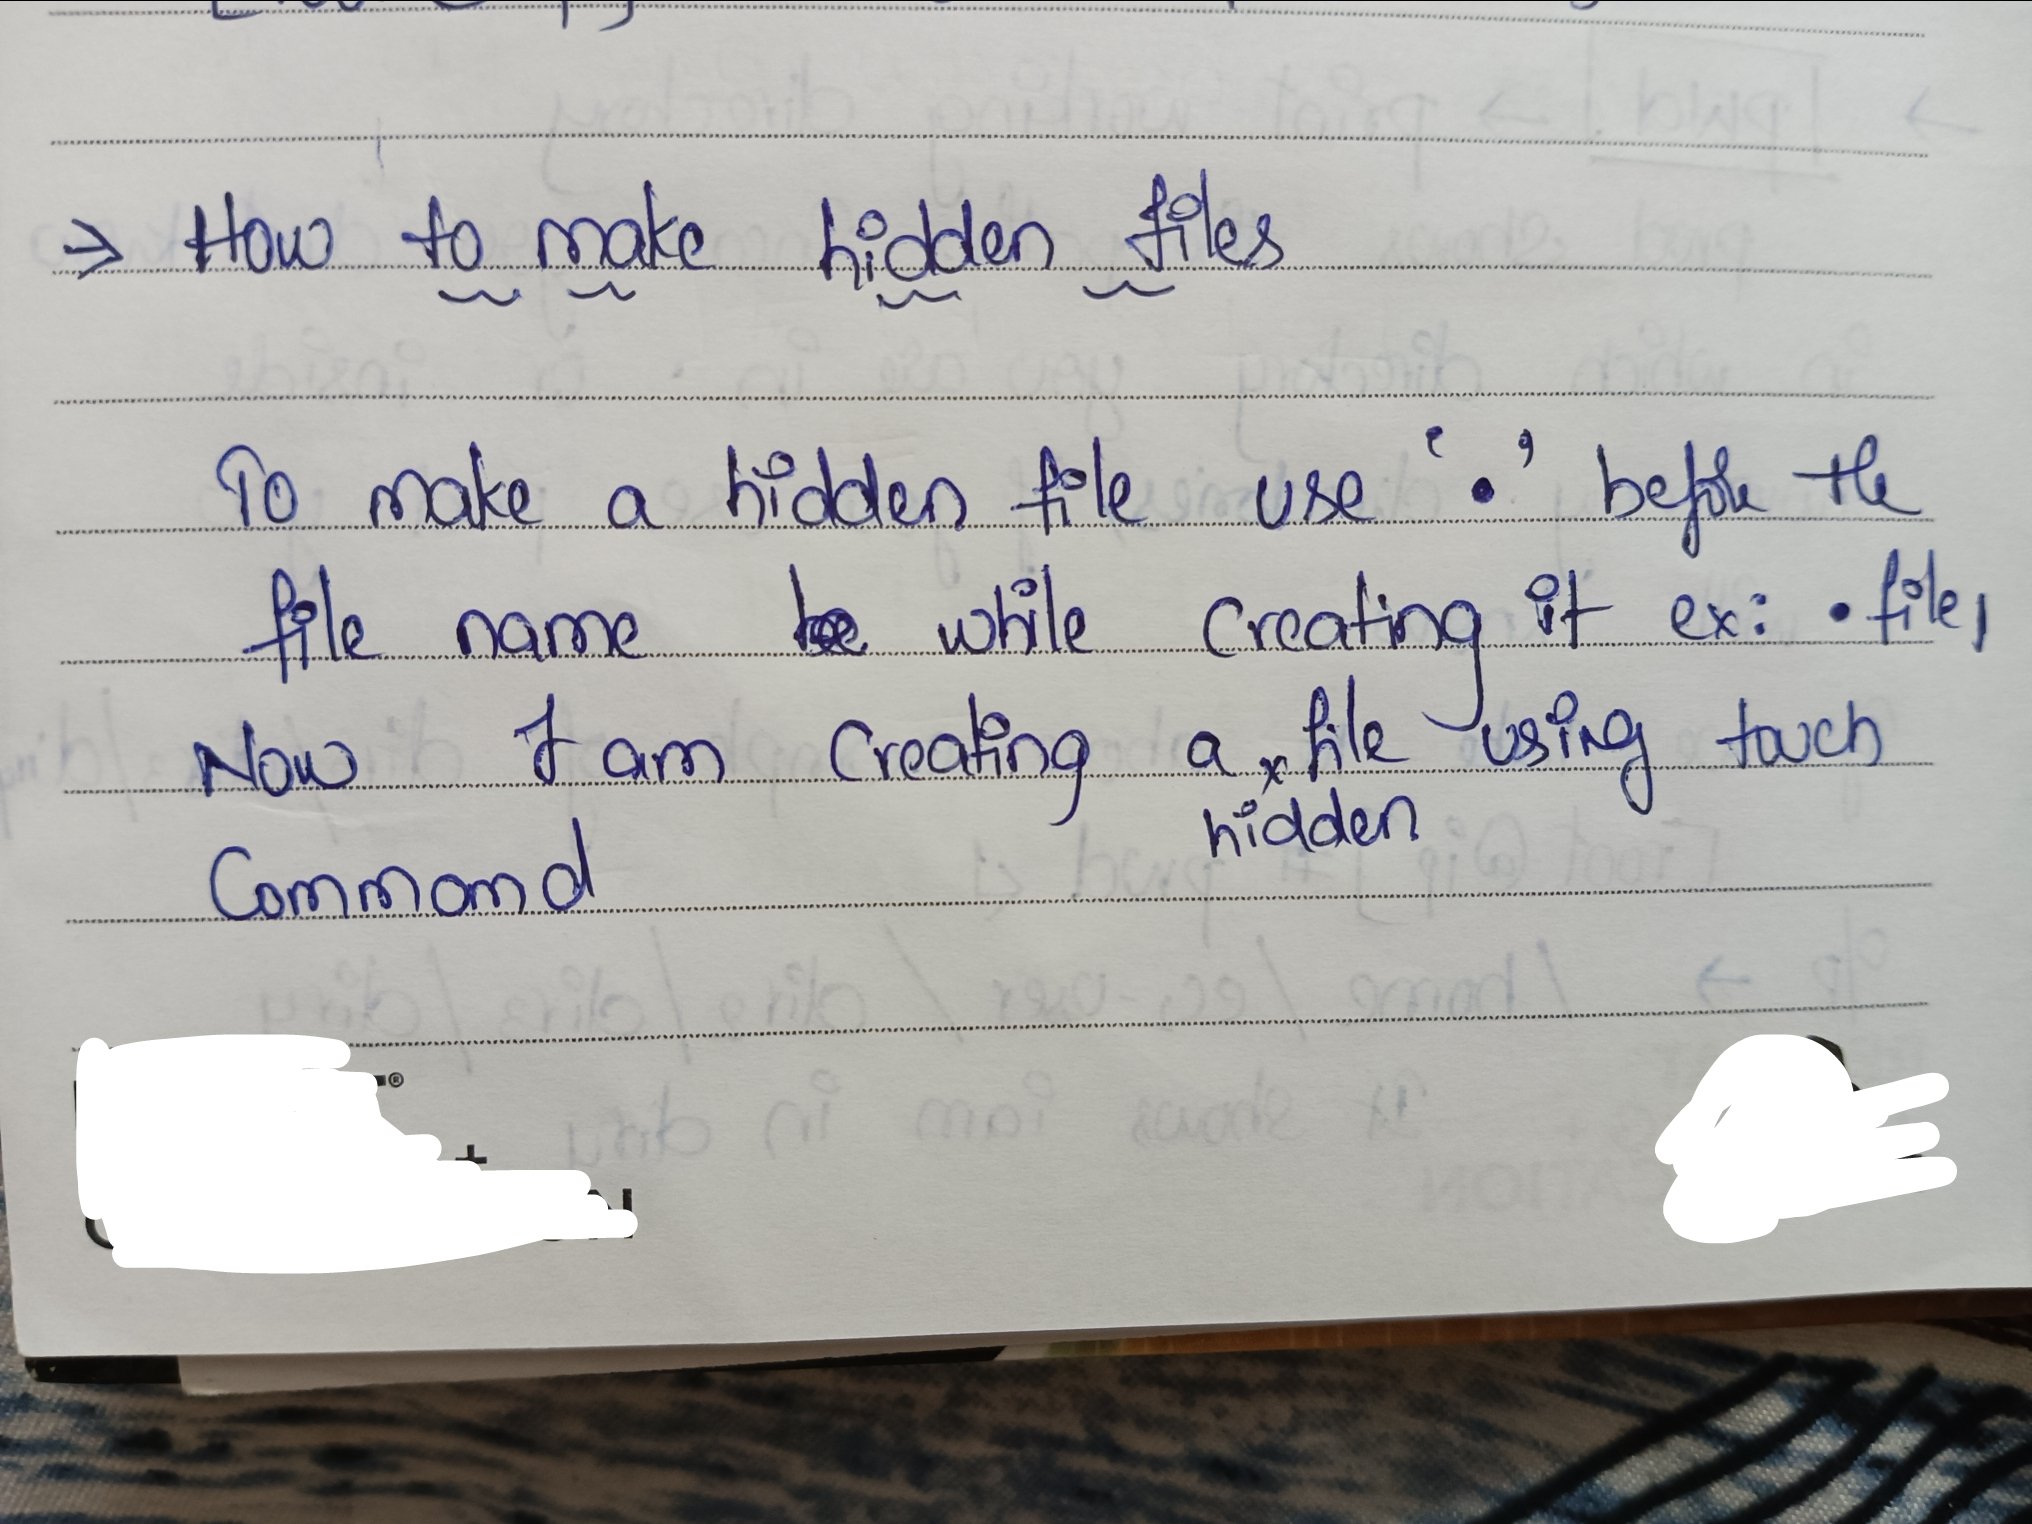 → How to make hidden files
To make a hidden file use '.' before the
file name while creating it ex: .file1
Now I am creating a hidden file using touch
Command